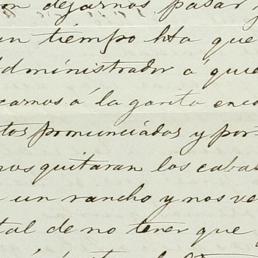 on dejarnos pasar
un tiempo hta que
Administrador a quie
carnos á la garita enc
tos pronunciados y por
nos quitaran los cabal
a un rancho y nos ve
tal de no tener que